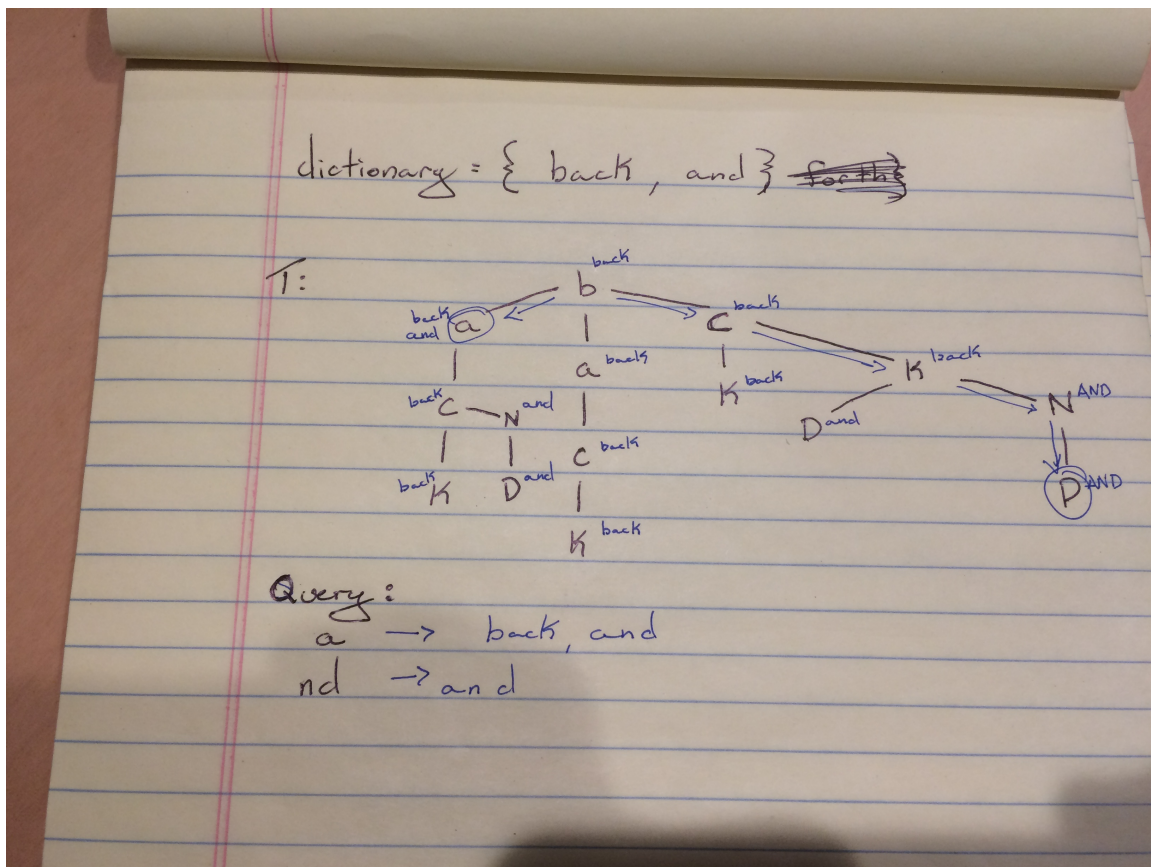 dictionary = { back , and } forth}
T:
back
b
back
and a
C back
a back
K back
K back
back C N and
D and
N AND
back K D and
C back
D AND
K back
Query:
a → back, and
nd → and